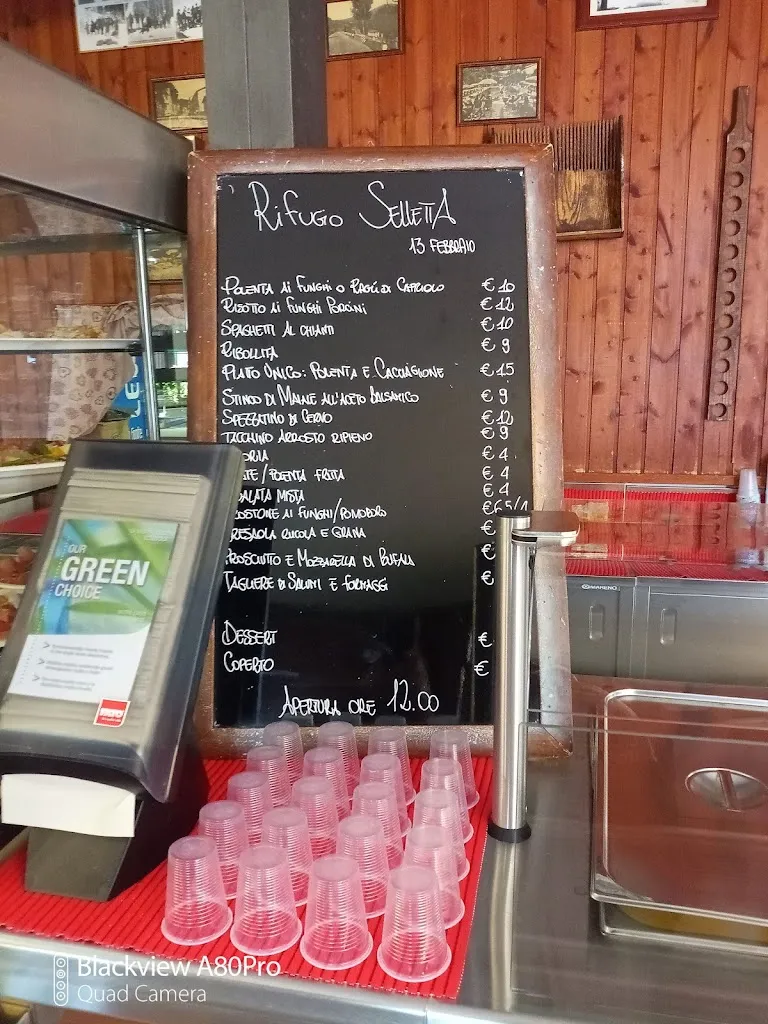 Rifugio Selletta
13 Febbraio
Polenta ai Funghi o Ragù di Capriolo € 10
Risotto ai Funghi Porcini € 12
Spaghetti al Chianti € 10
Ribollita € 9
Piatto Unico: Polenta e Cacciagione € 15
Stinco di Maiale all'Aceto Balsamico € 9
Spezzatino di Cervo € 12
Tacchino Arrosto Ripieno € 9
€ 4
/Polenta Fritta € 4
Mista € 4
ai Funghi/Pomodoro €
Rucola e Grana €
Prosciutto e Mozzarella di Bufala €
Tagliere di Salumi e Formaggi €
Dessert €
Coperto €
Apertura ore 12.00
OUR
GREEN
CHOICE
MARENO
Blackview A80Pro
Quad Camera